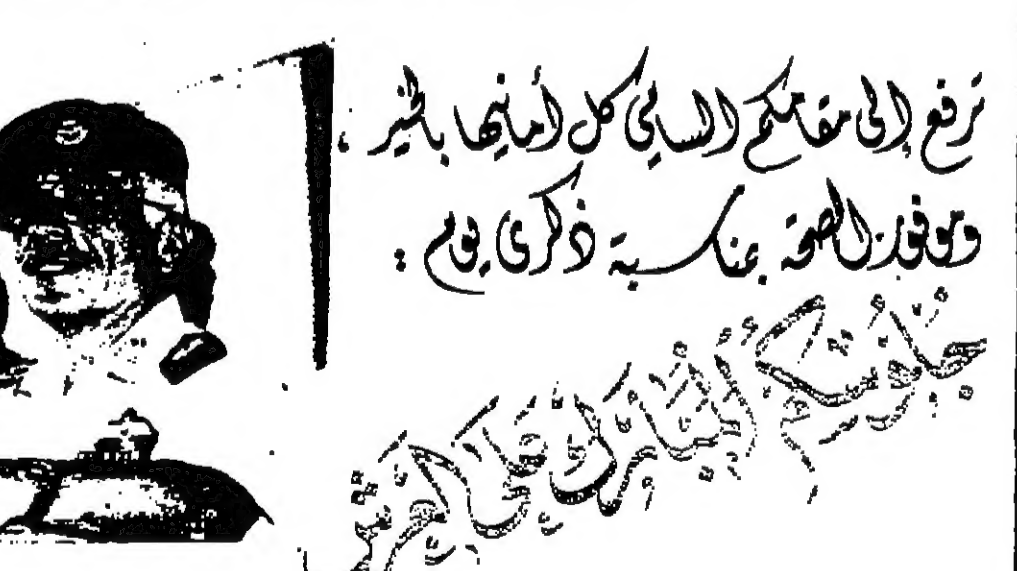 ترفع إلى مقامكم السامي كل أمانيها بالخير ،
وموفور الصحة بمناسبة ذكرى يوم :
جلوسكم المبارك على العرش